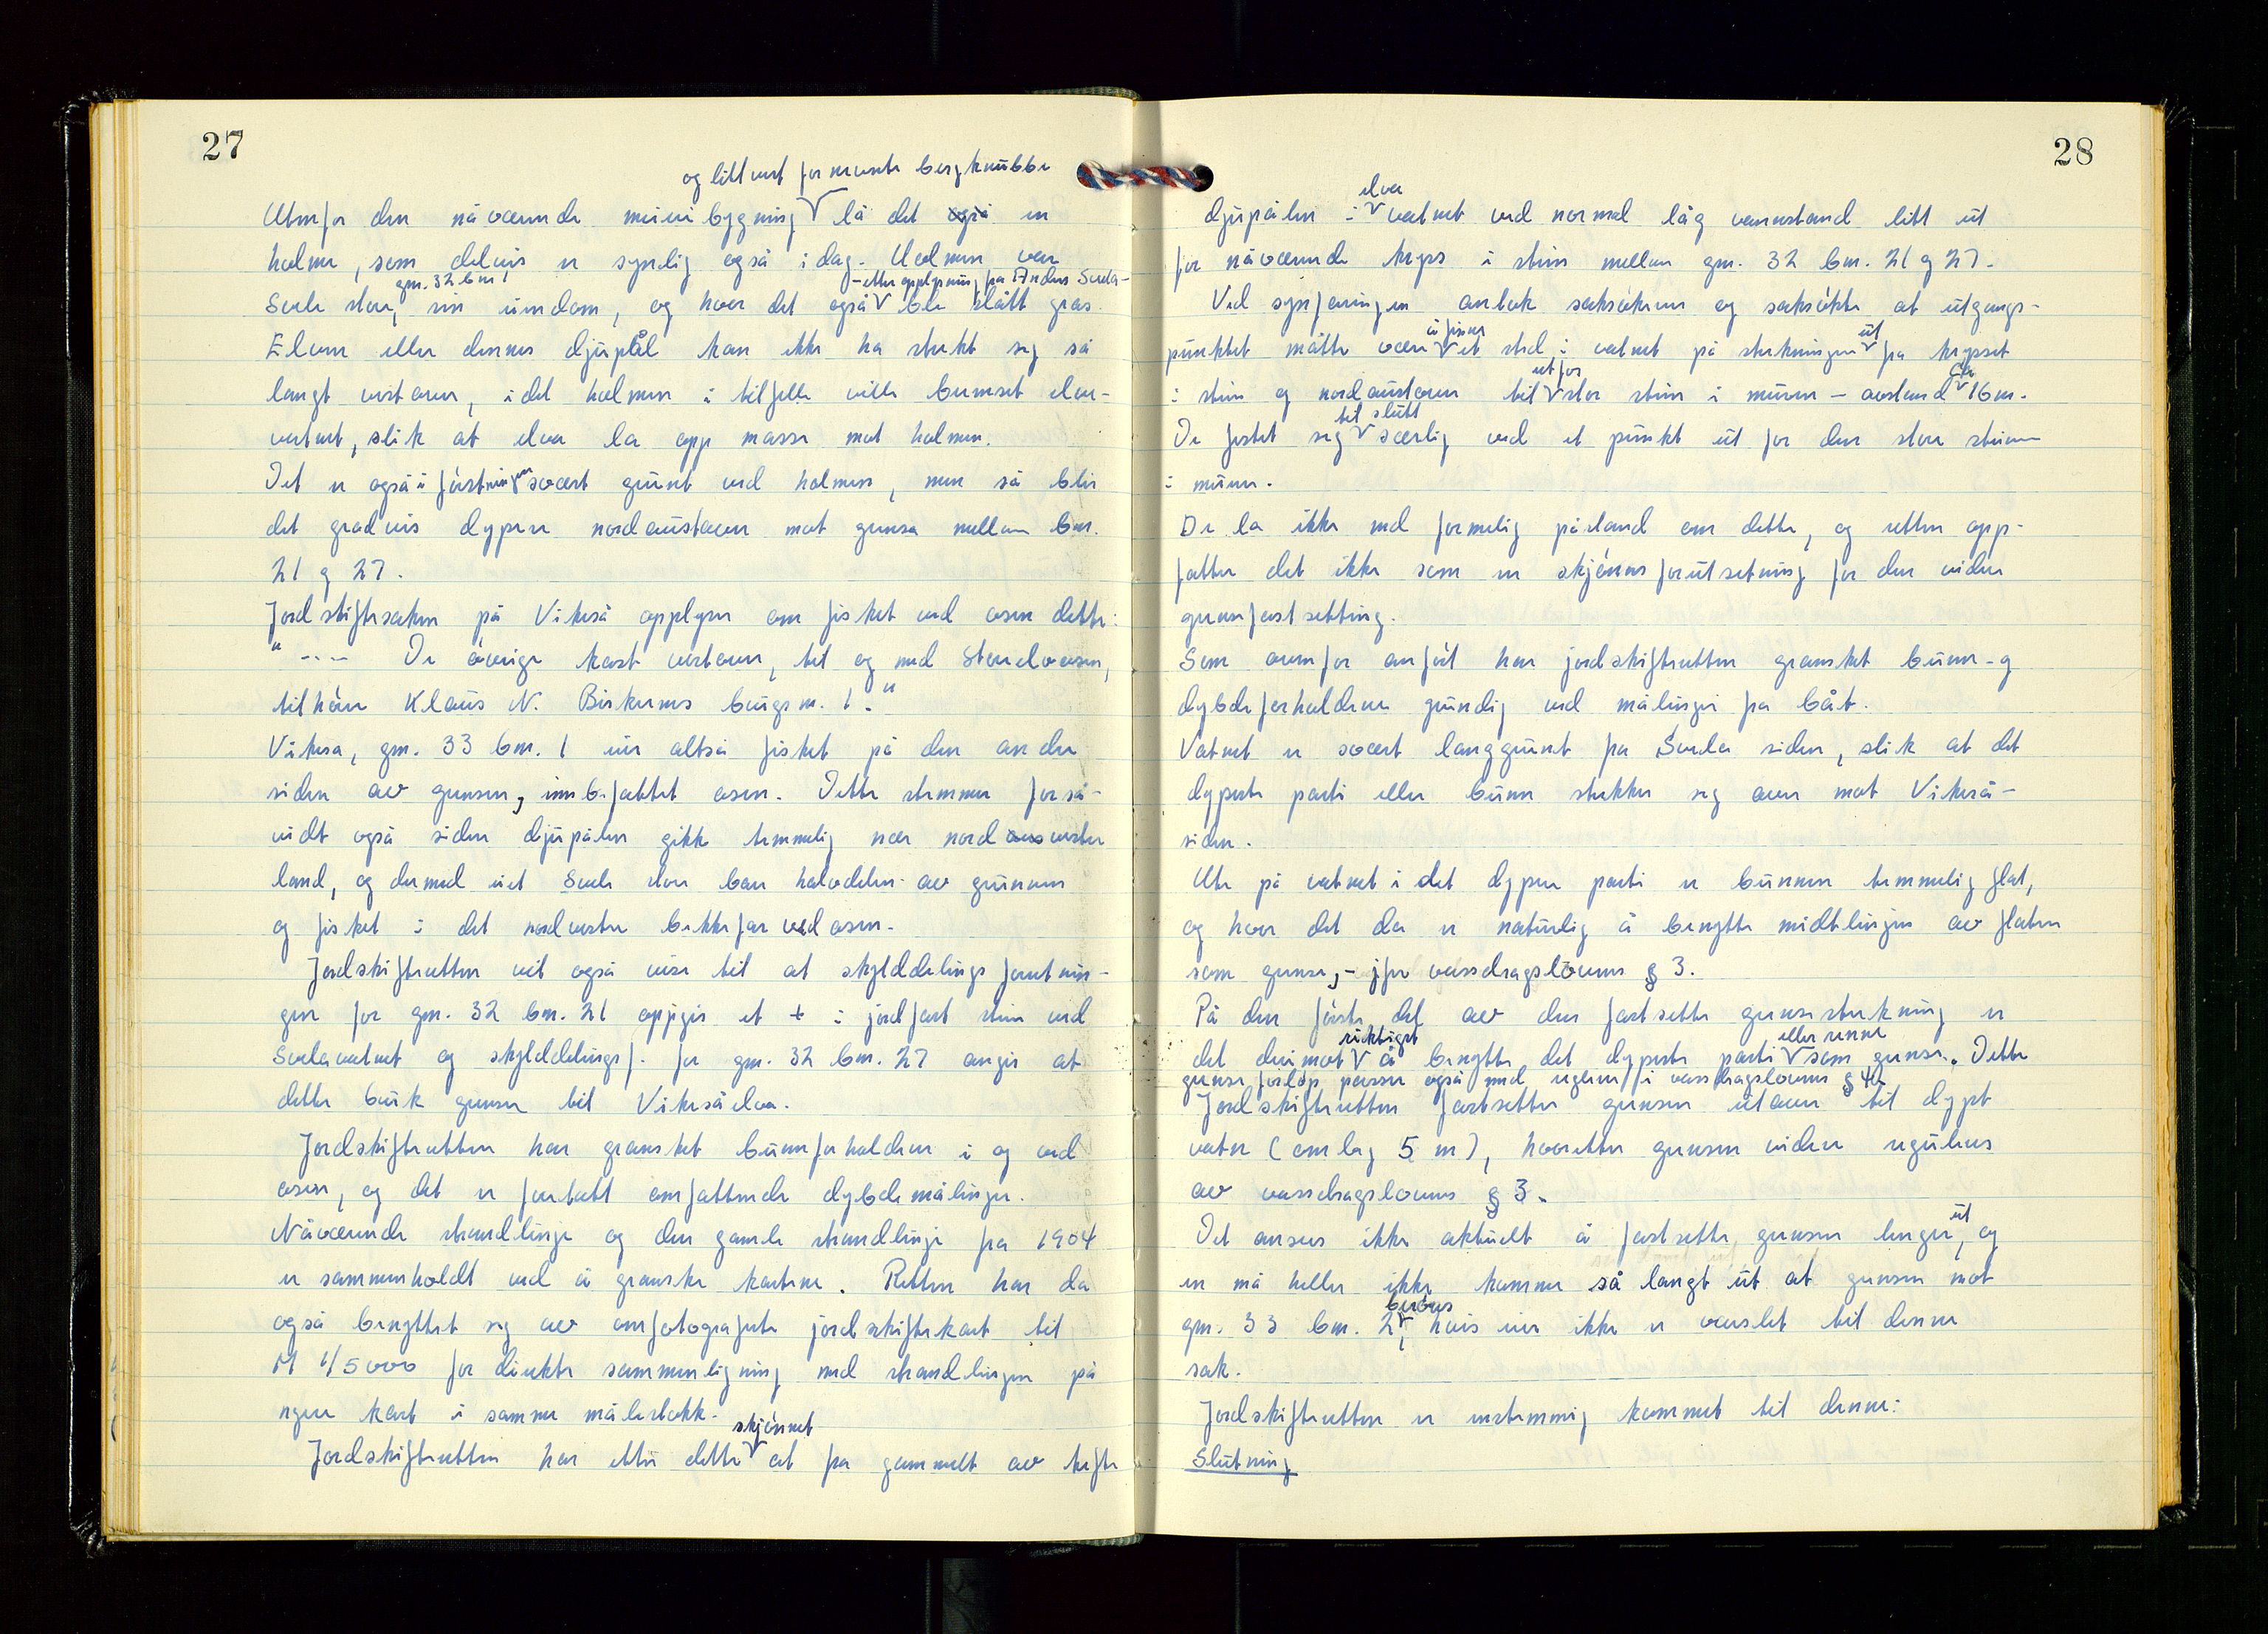 27
og litt vest for nevnte bergknubbe
Utenfor den nåværende meieribygning lå det også en
holme, som delvis er synlig også i dag. Holmen var
gm. 32 bm 1 - etter opplysning fra Anders Svela-
Svela store, sin eiendom, og hvor det også ble slått gras.
Elven eller dennes djupål kan ikke ha strekt seg så
langt vestover, i det holmen i tilfelle ville bremset elve-
vatnet, slik at elva la opp masse mot holmen.
Det er også i førstningen svært grunt ved holmen, men så blir
det gradvis dypere nordaustover mot grensa mellom bm.
21 og 27.
Jordskiftesaken på Vikeså opplyser om fisket ved osen dette:
" ---- De øvrige kast vestover, til og med Storelvosen,
tilhører Klaus N. Birkrems bruksnr. 1."
Vikesa, gm. 33 bm. 1 eier altså fisket på den andre
siden av grensen, innbefattet osen. Dette stemmer forså-
vidt også siden djupålen gikk temmelig nær nordvestre
land, og dermed eiet Svela store bare halvdelen av grunnen
og fisket i det nordvestre bekkefar ved osen.
Jordskifteretten vil også vise til at skylddelings forretnin-
gen for gm. 32 bm. 21 oppgir et + i jordfast stein ved
Svelavatnet og skylddelingsf. for gm. 32 bm. 27 angir at
dette bruk grenser til Vikesåelva.
Jordskifteretten har gransket bunnforholdene i og ved
osen, og det er foretatt omfattende dybdemålinger.
Nåværende strandlinje og den gamle strandlinje fra 1904
er sammenholdt ved å granske kartene. Retten har da
også benyttet seg av omfotograferte jordskiftekart til
M 1/5000 for direkte sammenligning med strandlinjen på
nyere kart i samme målestokk.
skjønnet
Jordskifteretten har etter dette at fra gammelt av krefte
28
elva
djupålen i vatnet ved normal låg vannstand litt ut
for nåværende kryss i stein mellom gm. 32 bm. 21 og 27.
Ved synfaringen antok saksøkeren og saksøkte at utgangs-
å finne ut
punktet måtte være et sted i vatnet på strekningen fra krysset
ut for ca
i stein og nordaustover til stor stein i muren - avstand 16 m.
til slutt
De festet seg særlig ved et punkt ut for den store steinen
i muren.
De la ikke ned formelig påstand om dette, og retten opp-
fatter det ikke som en skjønnsforutsetning for den videre
grensefastsetting.
Som ovenfor anført har jordskifteretten gransket bunn- og
dybdeforholdene grundig ved målinger fra båt.
Vatnet er svært langgrunt fra Svela siden, slik at det
dypeste parti eller bunn strekker seg over mot Vikeså-
siden.
Ute på vatnet i det dypere parti er bunnen temmelig flat,
og hvor det da er naturlig å benytte midtlinjen av flaten
som grense, - jfr vassdragslovens § 3.
På den første del av den fastsette grensestrekning er
riktigst eller renne
det derimot å benytte det dypeste parti som grense. Dette
grense forløp passer også med reglene i vassdragslovens § 4b
Jordskifteretten fastsetter grensen utover til dypt
vatn (omlag 5 m), hvoretter grensen videre reguleres
av vassdragslovens § 3.
ut
Det anses ikke aktuelt å fastsette grensen lenger, og
en må heller ikke komme så langt ut at grensen mot
berøres
gm. 33 bm. 2, hvis eier ikke er varslet til denne
sak.
Jordskifteretten er enstemmig kommet til denne:
Slutning